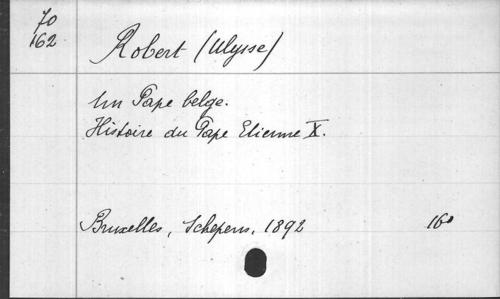 70
162
Robert (Ulysse)
Un Pape belge.
Histoire du Pape Etienne X.
Bruxelles, Schepens, 1892 16°